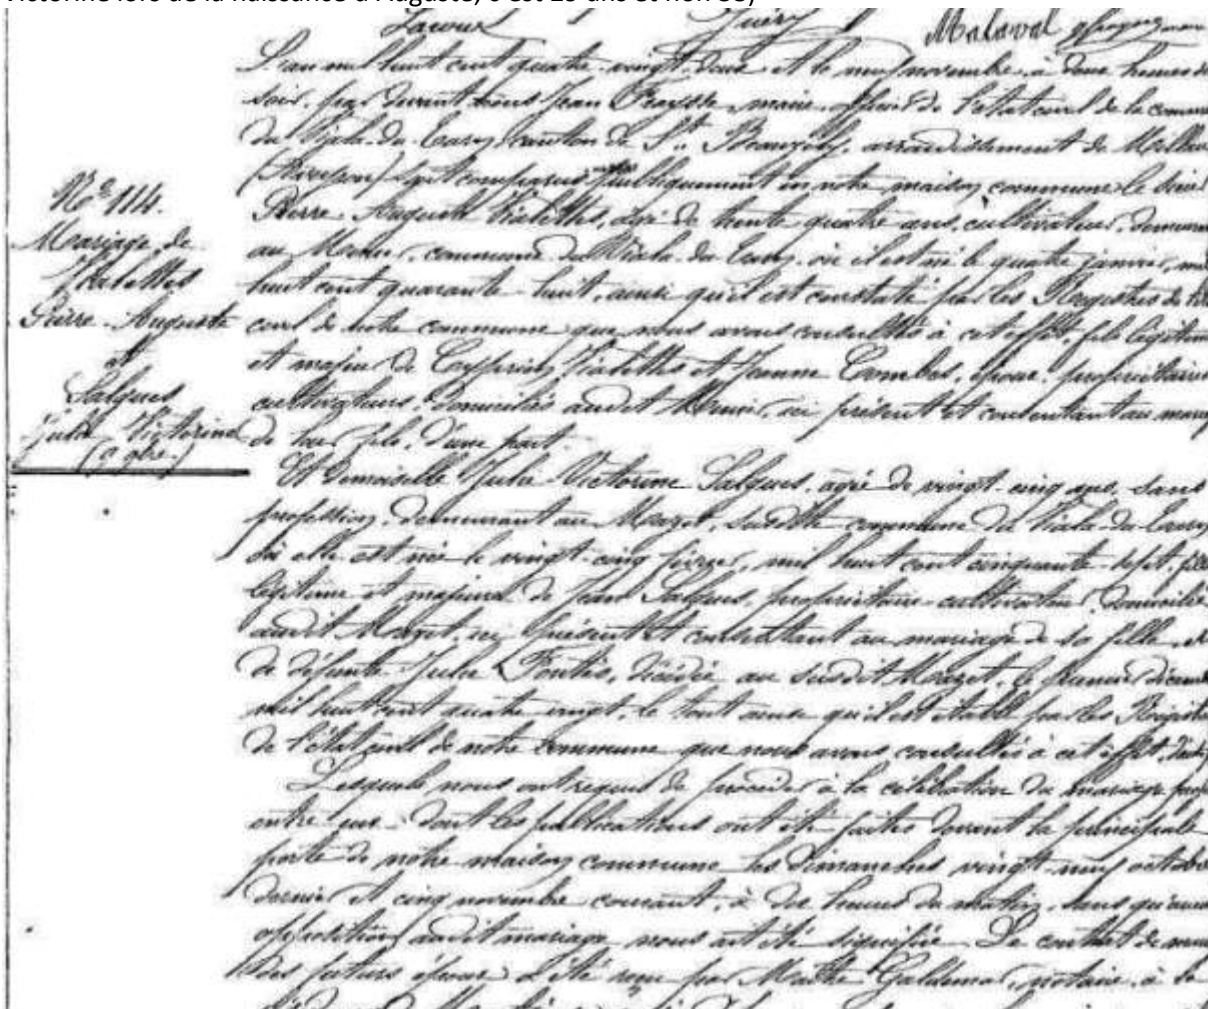 Victorine lors de la naissance d'Auguste, c'est 25 ans et non
Lacoux Juéry Malaval
L'an mil huit cent quatre-vingt-deux et le neuf novembre, à deux heures du
soir, par devant nous Jean Fraysse, maire, officier de l'état civil de la commune
du Viala-du-Tarn, canton de St Beauzély, arrondissement de Millau
(Aveyron) sont comparus publiquement en notre maison commune le sieur
Pierre Auguste Vialettes, âgé de trente quatre ans, cultivateur, demeurant
au commune du Viala-du-Tarn, où il est né le quatre janvier, mil
huit cent quarante-huit, ainsi qu'il est constaté par les Registres de l'état
civil de notre commune que nous avons consultés à cet effet, fils légitime
et majeur de Vialettes et Jeanne Combes, époux, propriétaires
cultivateurs, domiciliés audit ici présents et consentant au mariage
de leur fils, d'une part.
Nº 114.
Mariage de
Vialettes
Pierre-Auguste
et
Salgues
Julie Victorine
Et Demoiselle Julie Victorine Salgues, agée de vingt-cinq ans, sans
profession, demeurant au Mazet, susdite commune du Viala-du-Tarn
où elle est née le vingt-cinq février, mil huit cent cinquante-sept, fille
légitime et majeure de Jean Salgues, propriétaire-cultivateur, domicilié
audit Mazet, ici présent et consentant au mariage de sa fille, et
de défunte Julie Fontés, décédée au susdit Mazet, le premier décembre
mil huit cent quatre vingt, le tout ainsi qu'il est établi par les Registres
de l'état civil de notre commune que nous avons consultés à cet effet,
Lesquels nous ont requis de procéder à la célébration du mariage projeté
entre eux dont les publications ont été faites devant la principale
porte de notre maison commune les dimanches vingt-neuf octobre
dernier et cinq novembre courant, à dix heures du matin, sans qu'aucune
opposition audit mariage nous ait été signifiée. Le contrat de mariage
des futurs époux a été reçu par Maître Galdemar, notaire, à la